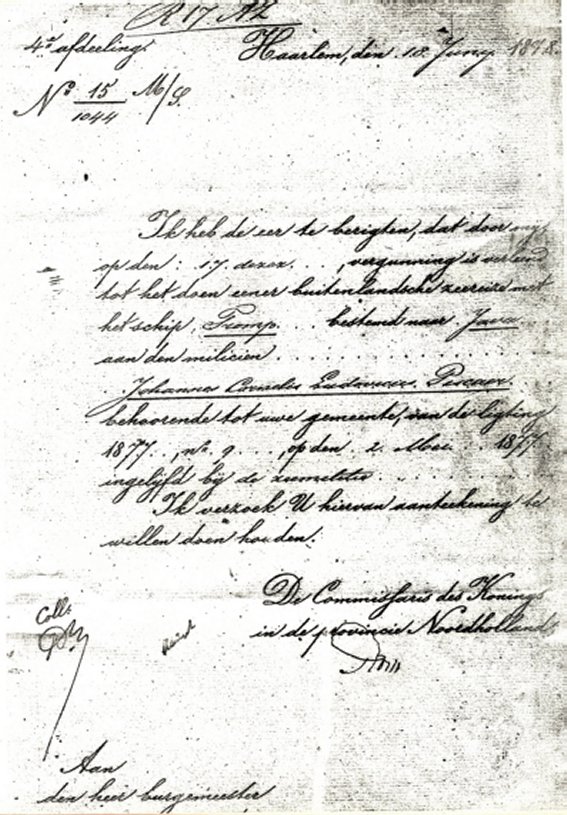 R 17 AZ
4de afdeeling.
Haarlem, den 18 Juny 1878.
No 15/1044 M/S.
Ik heb de eer te berigten, dat door mij
op den : 17 dezer . . , vergunning is verleend
tot het doen eener buitenlandsche zeereize met
het schip, Tromp. . . bestemd naar Java
aan den milicien . . . . . . . . . . . . .
Johannes Cornelis Ludovicus
behoorende tot uwe gemeente, van de ligting
1877 . . , no. 9 . . . , op den . 2. Mei . . 1877
ingelijfd bij de zeemilitie . . . . . . . .
Ik verzoek U hiervan aanteekening te
willen doen houden.
De Commissaris des Konings
in de provincie Noordholland
Coll:
Aan
den heer burgemeester